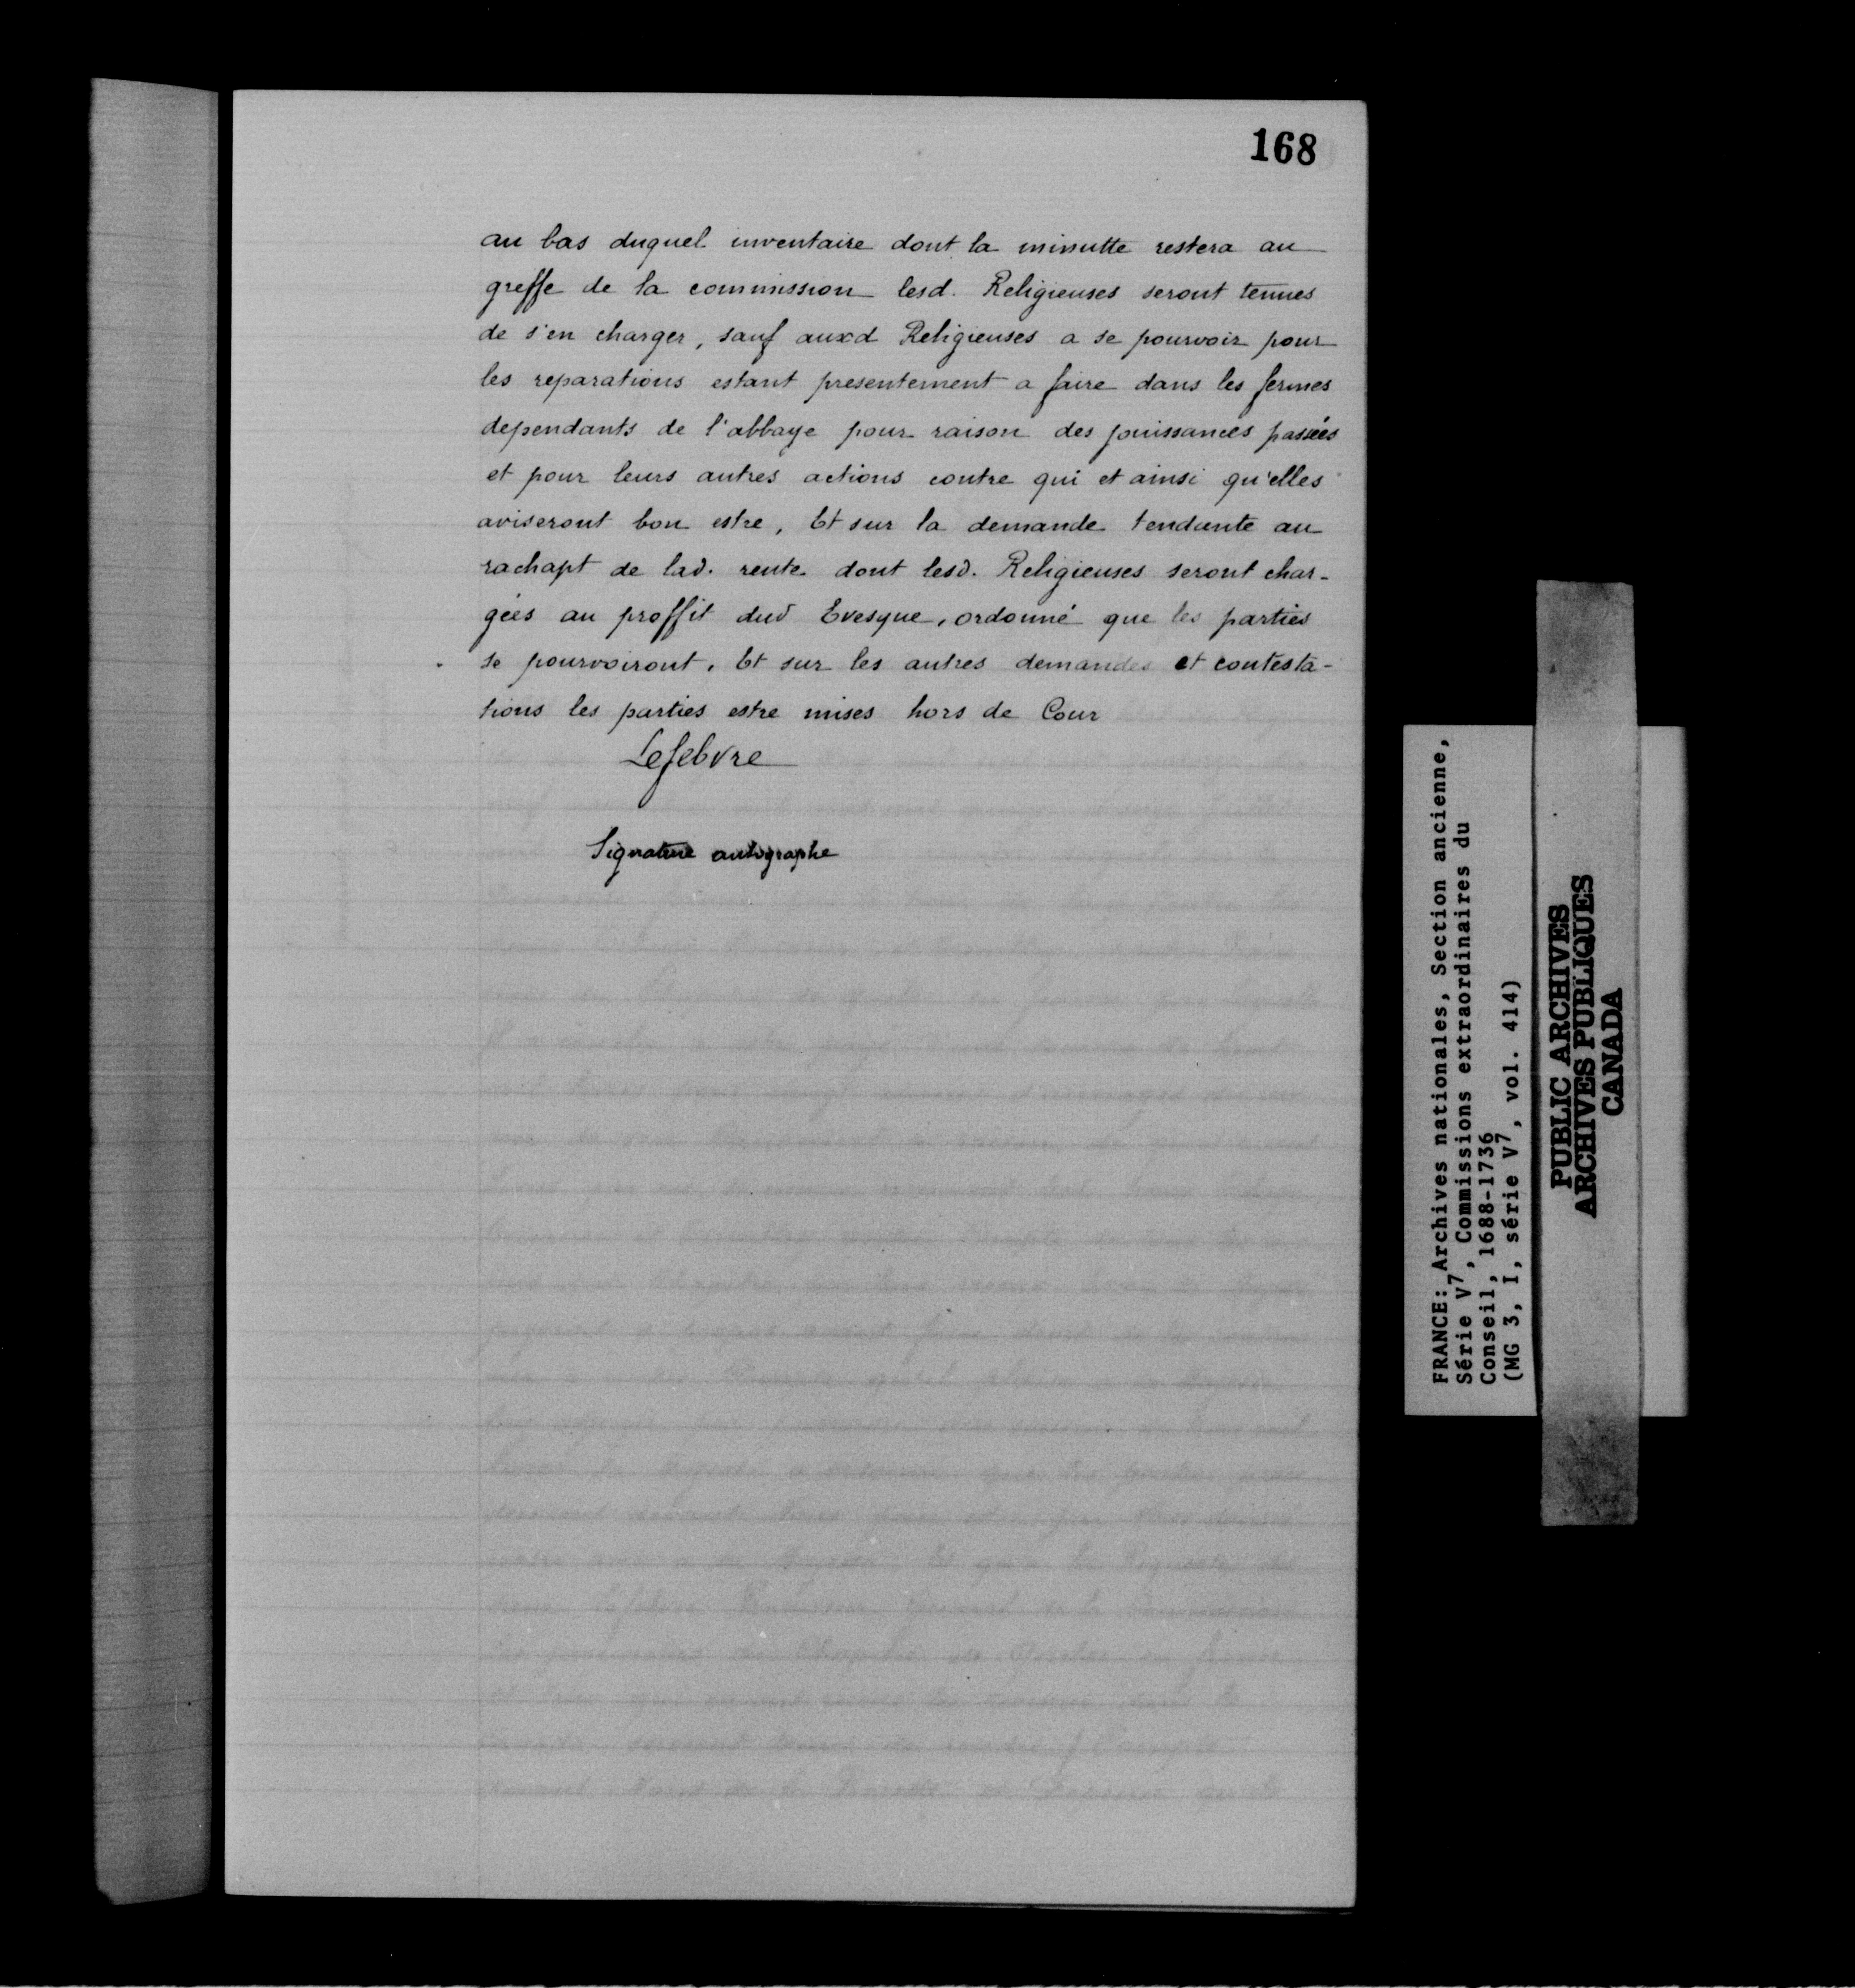 168
au bas duquel inventaire dont la minutte restera au
greffe de la commission lesd. Religieuses seront tenues
de s'en charger, sauf auxd Religieuses a se pourvoir pour
les reparations estant presentement a faire dans les fermes
dependants de l'abbaye pour raison des jouissances passées
et pour leurs autres actions contre qui et ainsi qu'elles
aviseront bon estre, Et sur la demande tendante au
rachapt de lad. rente dont lesd. Religieuses seront char-
gées au proffit dud Evesque, ordonné que les parties
se pourvoiront, Et sur les autres demandes et contesta-
tions les parties estre mises hors de Cour
Lefebvre
Signature autographe
FRANCE: Archives nationales, Section ancienne,
Série V7, Commissions extraordinaires du
Conseil, 1688-1736
(MG 3, I, série V7, vol. 414)
PUBLIC ARCHIVES
ARCHIVES PUBLIQUES
CANADA